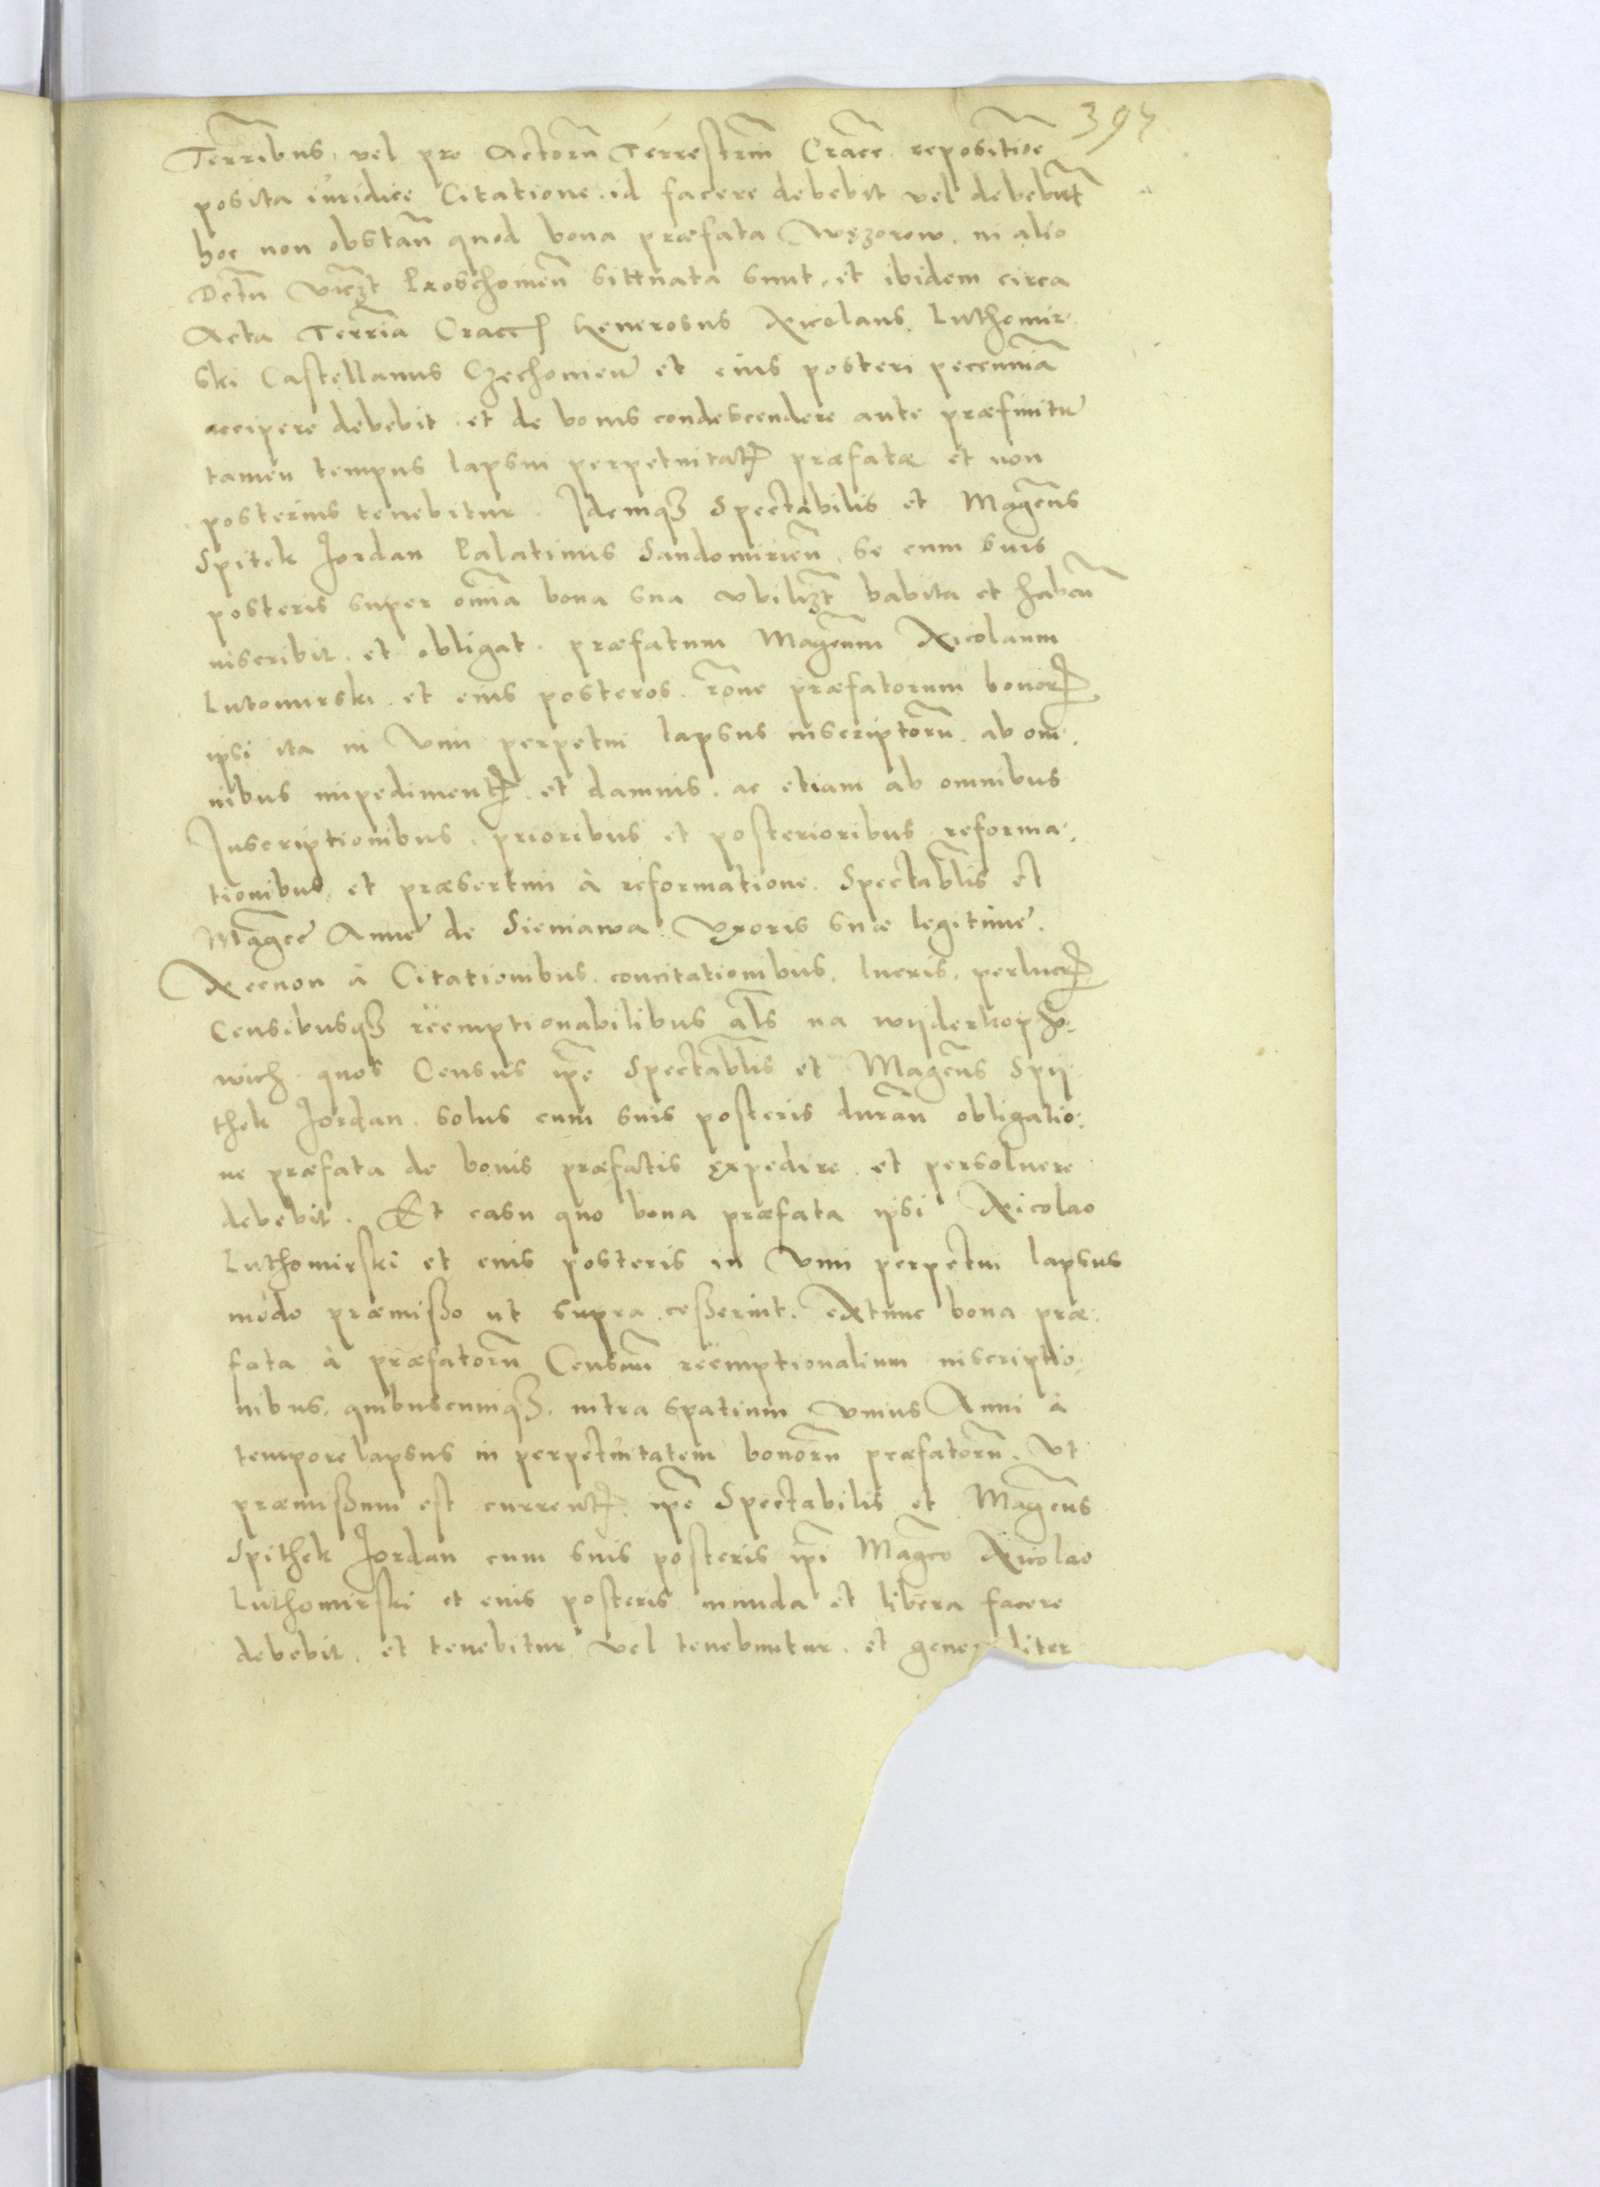 397
Terribus, vel pro Actoru Terrestriu Cracc repositioe
posita iuridice Citatione, id facere debebit vel debebut
hoc non obstan quod bona præfata Węzorow, in alio
Dctu vczt Proschouien sittuata sunt, et ibidem circa
Acta Terria Cracc Generosus Nicolaus Luthomir
ski Castellanus Czechouien et eius posteri peccunia
accipere debebit, et de bonis condescendere ante præfinitu
tamen tempus lapsui perpetuitat præfatæ et non
posterius tenebitur. Idemqz Spectabilis et Magcus
Spitek Jordan Palatinus Sandomirien, se cum suis
posteris super omia bona sua vbilizt habita et haben
inscribit, et obligat, præfatum Magcum Nicolaum
Lutomirski, et eius posteros, rone præfatorum bonor
ipsi ita in Vim perpetui lapsus inscriptoru, ab om,
nibus impediment, et damnis, ac etiam ab omnibus
Inscriptionibus, prioribus et posterioribus reforma,
tionibus, et præsertim à reformatione, Spectablis et
Magce Anne de Sieniawa Vxoris suæ legitime,
Necnon à Citationibus, concitationibus, lucris, perlucr
Censibusqz reemptionabilibus als na wyderkoph
wich, quos Census ipe Spectablis et Magcus Spy
thek Jordan, solus cum suis posteris duran obligatio:
ne præfata de bonis præfatis expedire, et persoluere
debebit. Et casu quo bona præfata ipsi Nicolao
Luthomirski et eius posteris in Vim perpetui lapsus
modo præmisso ut supra, cesserint, extunc bona præ,
fata à præfatoru Censuu reemptionalium inscriptio
nibus, quibuscumqz, intra spatium vnius Anni à
tempore lapsus in perpetuitatem bonoru præfatoru, Vt
præmissum est current, ipe Spectabilis et Magcus
Spithek Jordan cum suis posteris ipi Magco Nicolao
Luthomirski et eius posteris munda et libera facere
debebit, et tenebitur vel tenebuntur, et generaliter